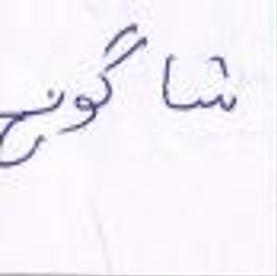 شا گونج